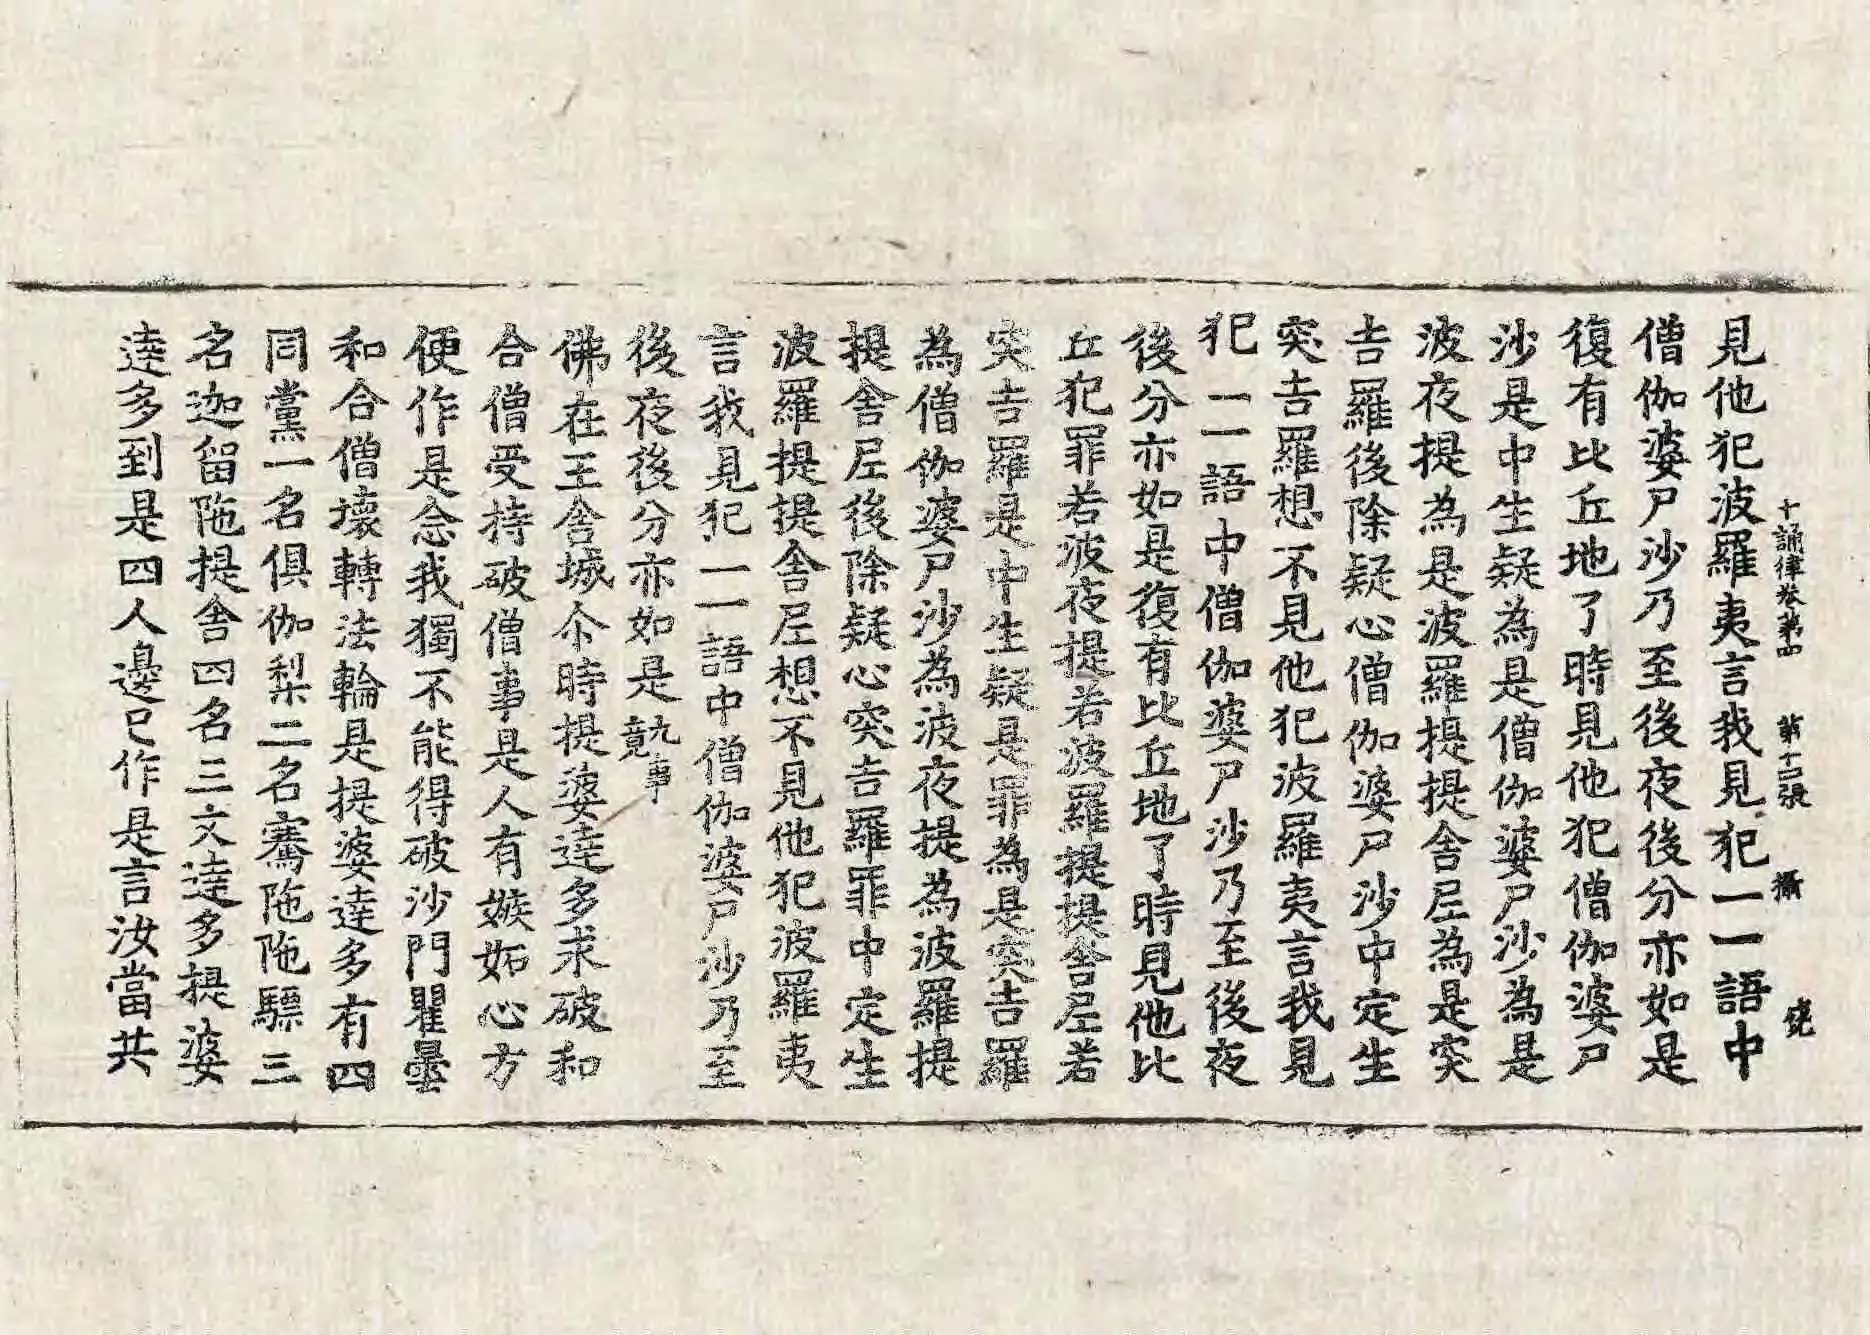 十誦律卷第四 第十二張 攝 党
見他犯波羅夷言我見犯一一語中
僧伽婆尸沙乃至後夜後分亦如是
復有比丘地了時見他犯僧伽婆尸
沙是中生疑為是僧伽婆尸沙為是
波夜提為是波羅提提舍尼為是突
吉羅後除疑心僧伽婆尸沙中定生
突吉羅想不見他犯波羅夷言我見
犯一一語中僧伽婆尸沙乃至後夜
後分亦如是復有比丘地了時見他比
丘犯罪若波夜提若波羅提提舍尼若
突吉羅是中生疑是罪為是突吉羅
為僧伽婆尸沙為波夜提為波羅提
提舍尼後除疑心突吉羅罪中定生
波羅提提舍尼想不見他犯波羅夷
言我見犯一一語中僧伽婆尸沙乃至
後夜後分亦如是九事竟
佛在王舍城尒時提婆達多求破和
合僧受持破僧事是人有嫉妬心方
便作是念我獨不能得破沙門瞿曇
和合僧壞轉法輪是提婆達多有四
同黨一名俱伽梨二名騫陁陁驃三
名迦留陁提舍四名三文達多提婆
達多到是四人邊已作是言汝當共